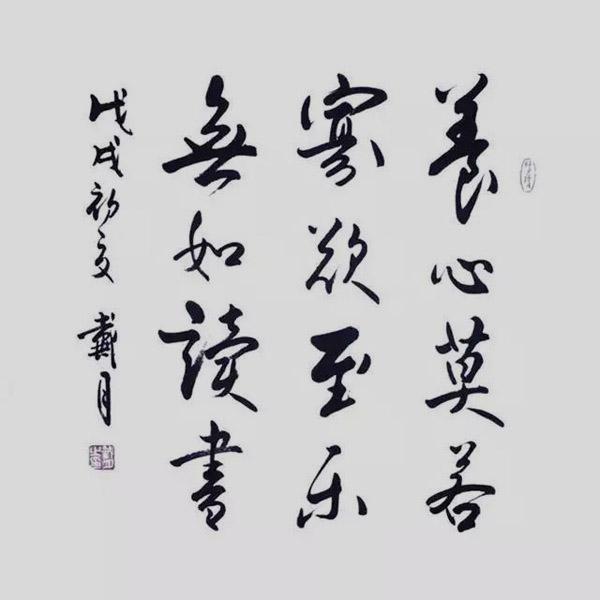 養心莫若
寡欲至乐
無如讀書
戊戌初夏 戴月